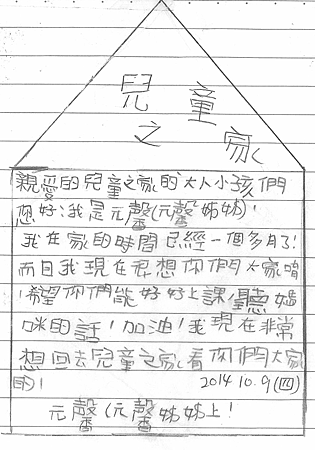 兒童
之
家
親愛的兒童之家的大人小孩們
您好:我是元馨(元馨姊姊)!
我在家的時間已經一個多月了!
而且我現在很想你們大家唷
!希望你們能好好上課!聽媽
咪的話!加油!我現在非常
想回去兒童之家看你們大家
的! 2014 10.9(四)
元馨(元馨姊姊上!